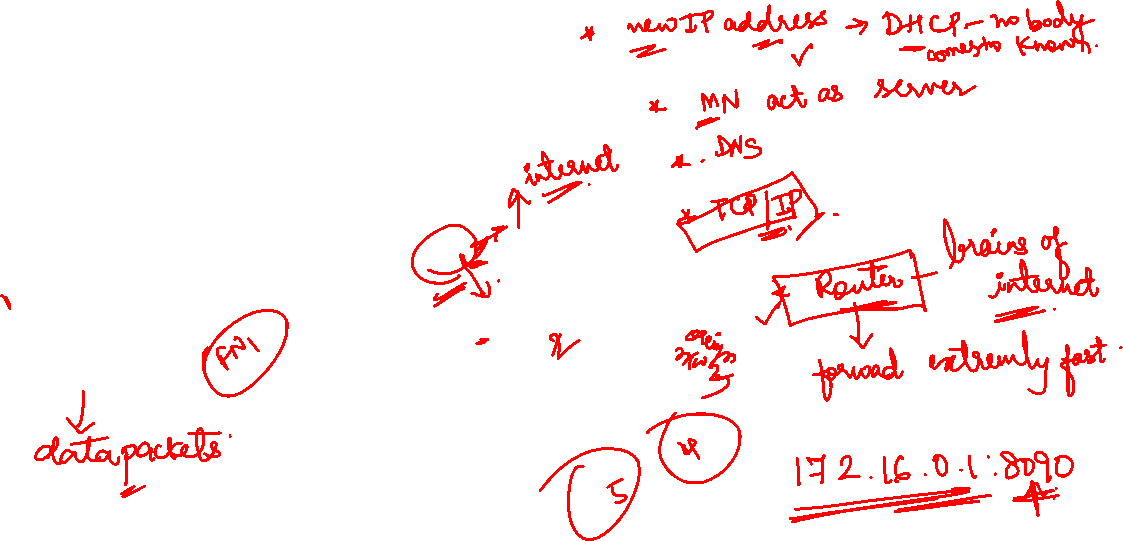 * new IP address → DHCP - no body
comes to known.
* MN act as server
*. DNS
internet
* TCP/IP
* Router - brains of
internet
forward extremly fast.
FN1
datapackets
4
5
172.16.0.1:8090